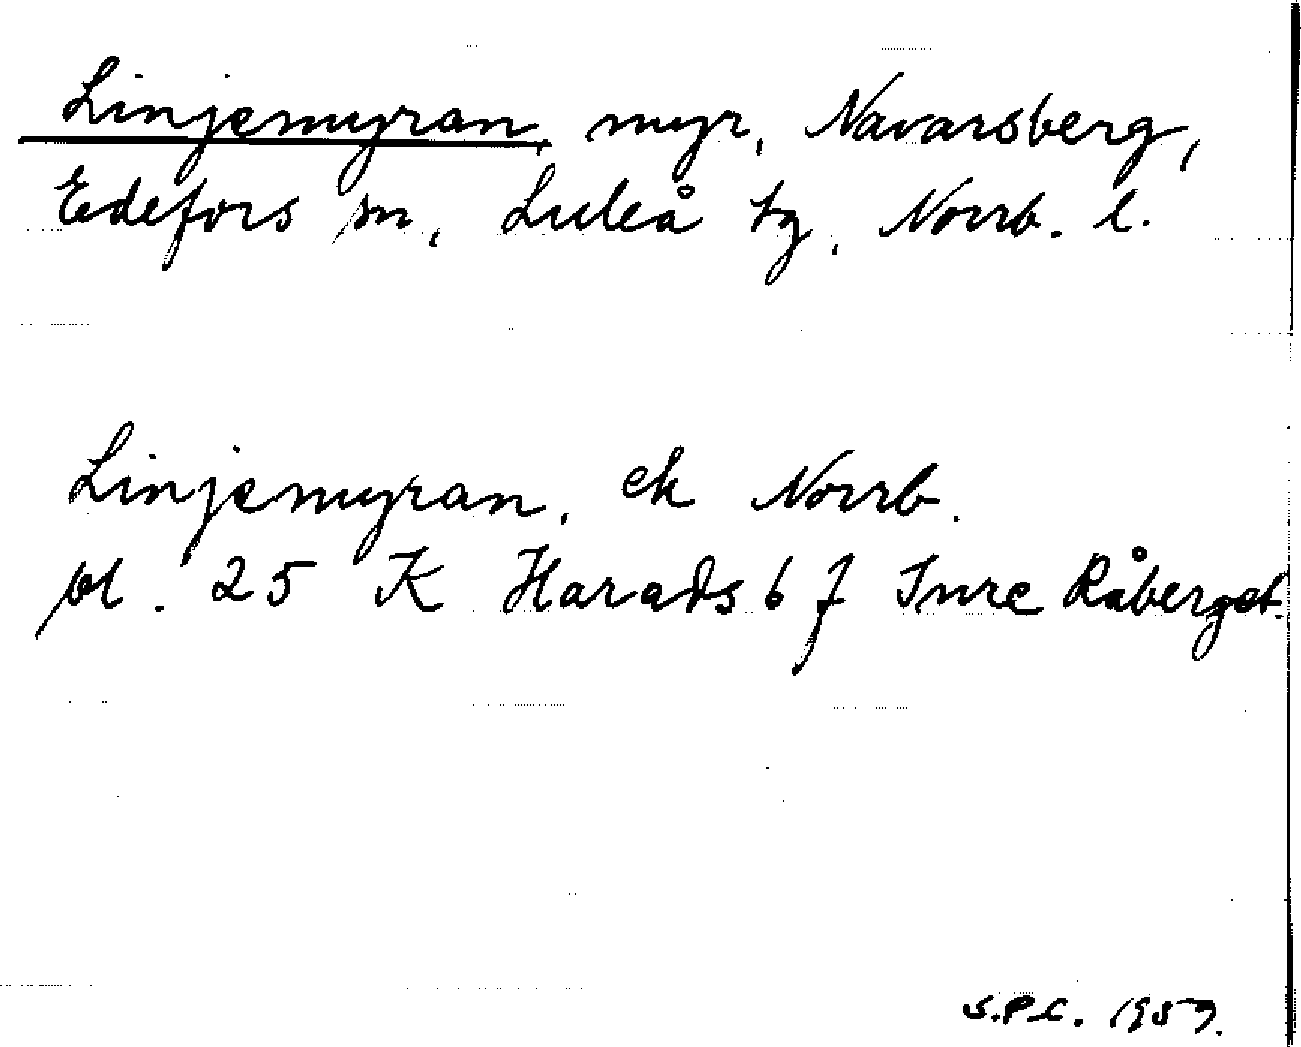 Linjemyran, myr, Navarsberg,
Edefors sn, Luleå tg, Norrb. l.
Linjemyran, ek Norrb.
bl. 25 K Harads 6 f Inre Råberget.
S.P.C. 1959.